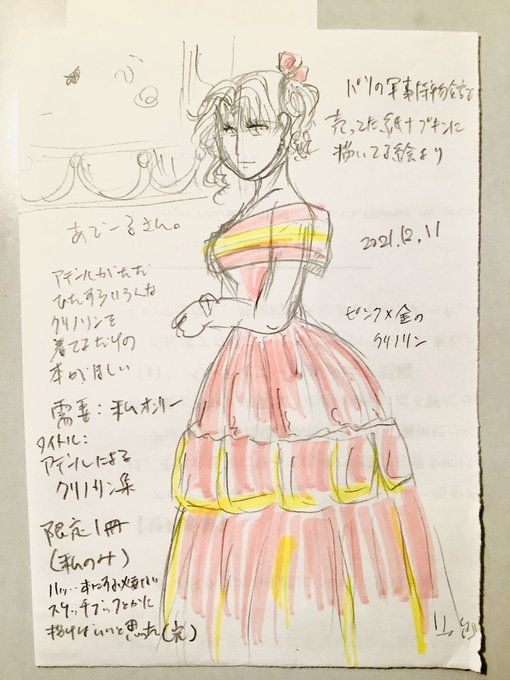 パリの軍事博物館で
売ってた紙ナプキンに
描いてる絵より
2021.12.11
ピンク×金の
クリノリン
あでーるさん。
アデールがただ
ひたすらいろんな
クリノリンを
着てるだけの
本がほしい
需要:私オンリー
タイトル:
アデールによる
クリノリン集
限定1冊
(私のみ)
ハッ…本にする必要ない
スケッチブックとかに
描けばいいと思った(完)